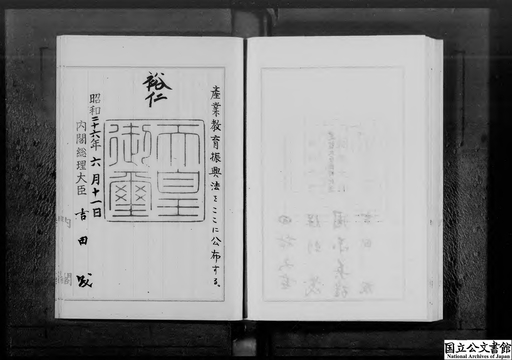 産業教育振興法をここに公布する。
裕仁
天皇御璽
昭和二十六年六月十一日
内閣総理大臣 吉田茂
国立公文書館
National Archives of Japan